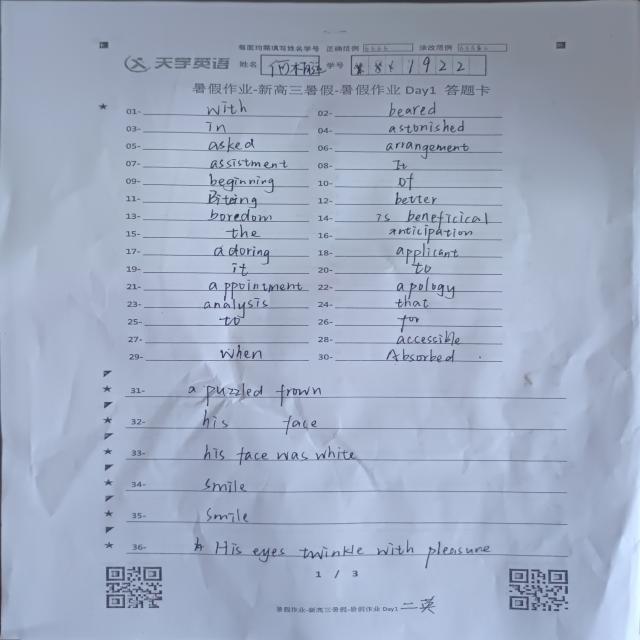 每面均需填写姓名学号 正确范例 涂改范例
天学英语 姓名 学号 1922
暑假作业-新高三暑假-暑假作业 Day1 答题卡
01- with 02- beared
03- in 04- astonished
05- asked 06- arrangement
07- assistment 08- It
09- beginning 10- of
11- Biteing 12- better
13- boredom 14- is beneficical
15- the 16- anticipation
17- adoring 18- applicant
19- it 20- to
21- appointment 22- apology
23- analysis 24- that
25- to 26- for
27- 28- accessible
29- when 30- Absorbed
31- a puzzled frown
32- his face
33- his face was white
34- smile
35- smile
36- His eyes twinkle with pleasure
1 / 3
暑假作业-新高三暑假-暑假作业 Day1 二英